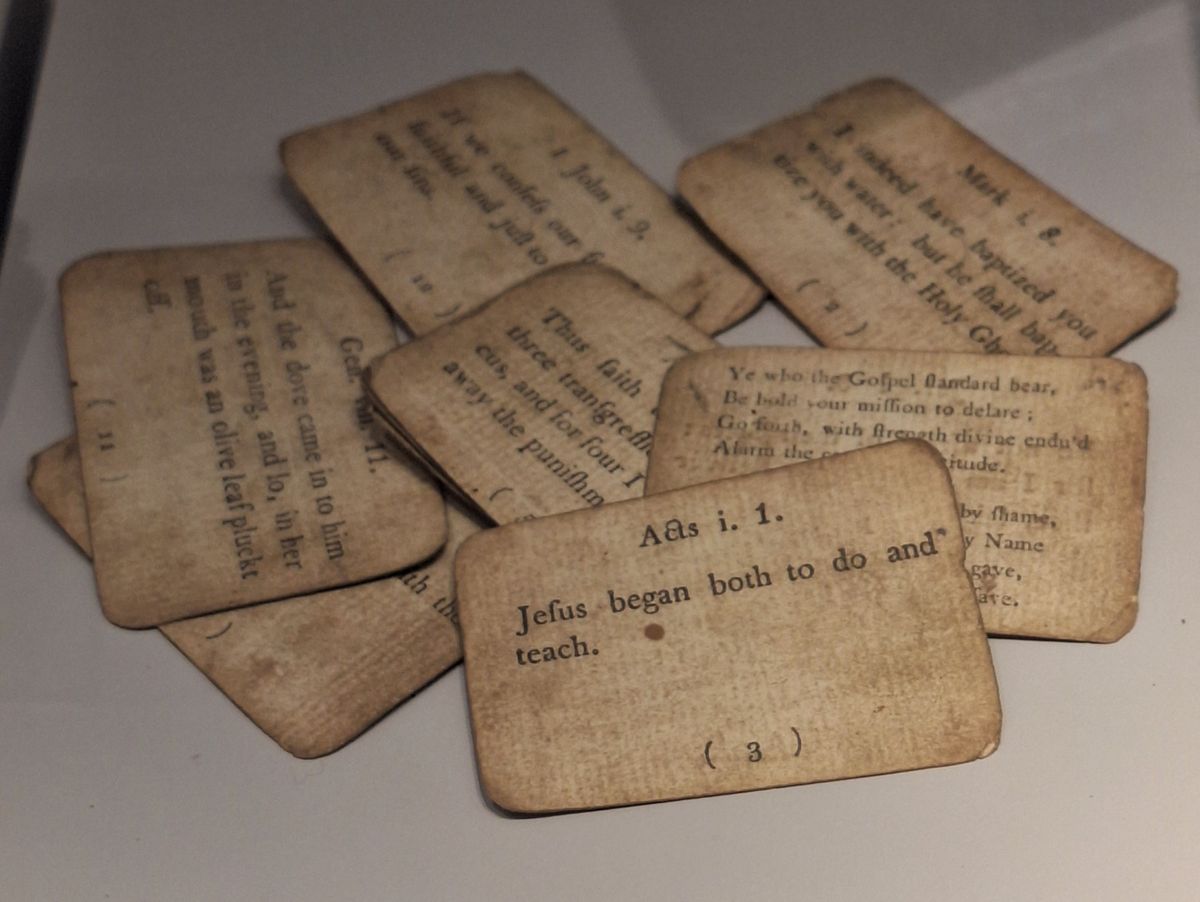 1 John i. 9.
If we confeſs our
faithful and juſt to
our ſins.
( 10 )
Mark i. 8.
I indeed have baptized you
with water; but he ſhall bap-
tize you with the Holy Gh
( 2 )
Gen. viii. 11.
And the dove came in to him
in the evening, and lo, in her
mouth was an olive leaf pluckt
off.
( 11 )
Thus ſaith
three tranſgreſſi
cus, and for four I
away the puniſhm
(
Ye who the Goſpel ſtandard bear,
Be bold your miſſion to delare;
Go forth, with ſtrength divine endu'd
Alarm the
itude.
by ſhame,
y Name
gave,
ſave.
ith the
)
Acts i. 1.
Jeſus began both to do and
teach.
( 3 )